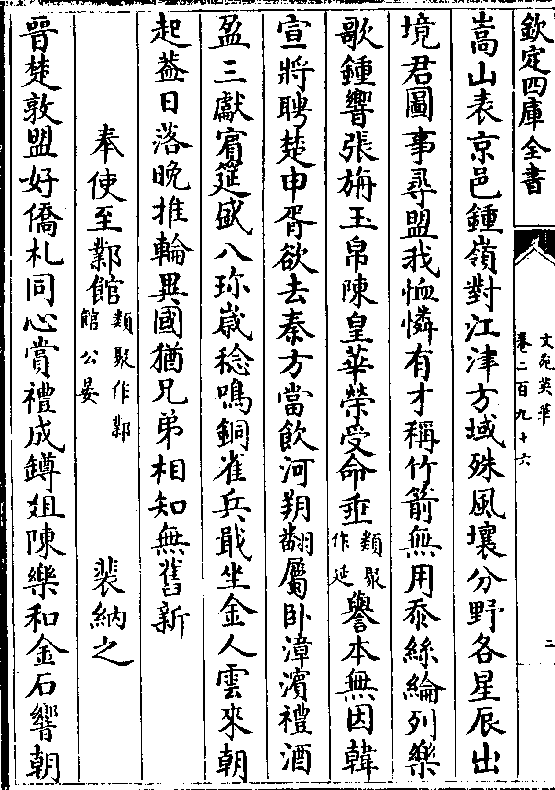 欽定四庫全書
文苑英華
卷二百九十六
二
嵩山表京邑鍾嶺對江津方域殊風壤分野各星辰出
境君圖事尋盟我恤憐有才稱竹箭無用忝絲綸列樂
歌鍾響張旃玉帛陳皇華榮受命垂類聚作延譽本無因韓
宣將聘楚申胥欲去秦方當飲河朔翻屬卧漳濱禮酒
盈三獻賓筵盛八珍歲稔鳴銅雀兵戢坐金人雲來朝
起葢日落晚推輪異國猶兄弟相知無舊新
奉使至鄴館類聚作鄴館公晏 裴納之
晉楚敦盟好僑札同心賞禮成罇俎陳樂和金石響朝